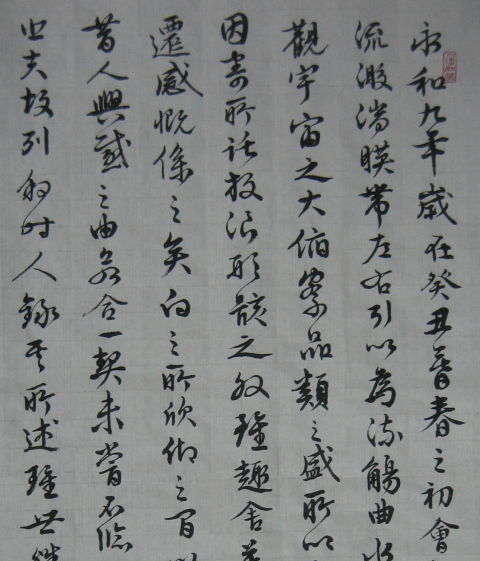 永和九年歲在癸丑暮春之初會
流激湍暎帶左右引以為流觴曲水
觀宇宙之大俯察品類之盛所以
因寄所託放浪形骸之外雖趣舍
遷感慨係之矣向之所欣仰之間
昔人興感之由若合一契未嘗不臨
夫故列敘時人錄其所述雖世